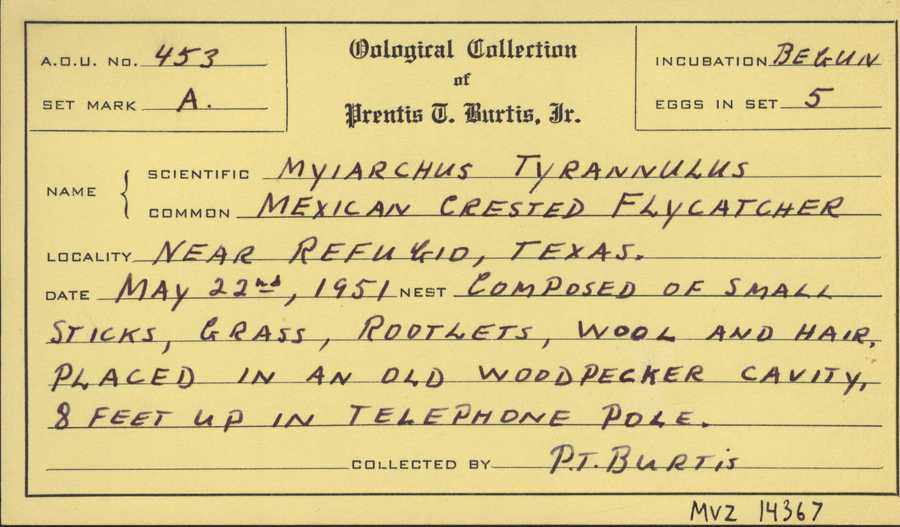 A.O.U. No. 453
SET MARK A.
Oological Collection
of
Prentis T. Burtis, Jr.
INCUBATION BEGUN
EGGS IN SET 5
NAME
SCIENTIFIC MYIARCHUS TYRANNULUS
COMMON MEXICAN CRESTED FLYCATCHER
LOCALITY NEAR REFUGIO, TEXAS.
DATE MAY 22nd, 1951 NEST COMPOSED OF SMALL
STICKS, GRASS, ROOTLETS, WOOL AND HAIR,
PLACED IN AN OLD WOODPECKER CAVITY,
8 FEET UP IN TELEPHONE POLE.
COLLECTED BY P.T. BURTIS
MVZ 14367